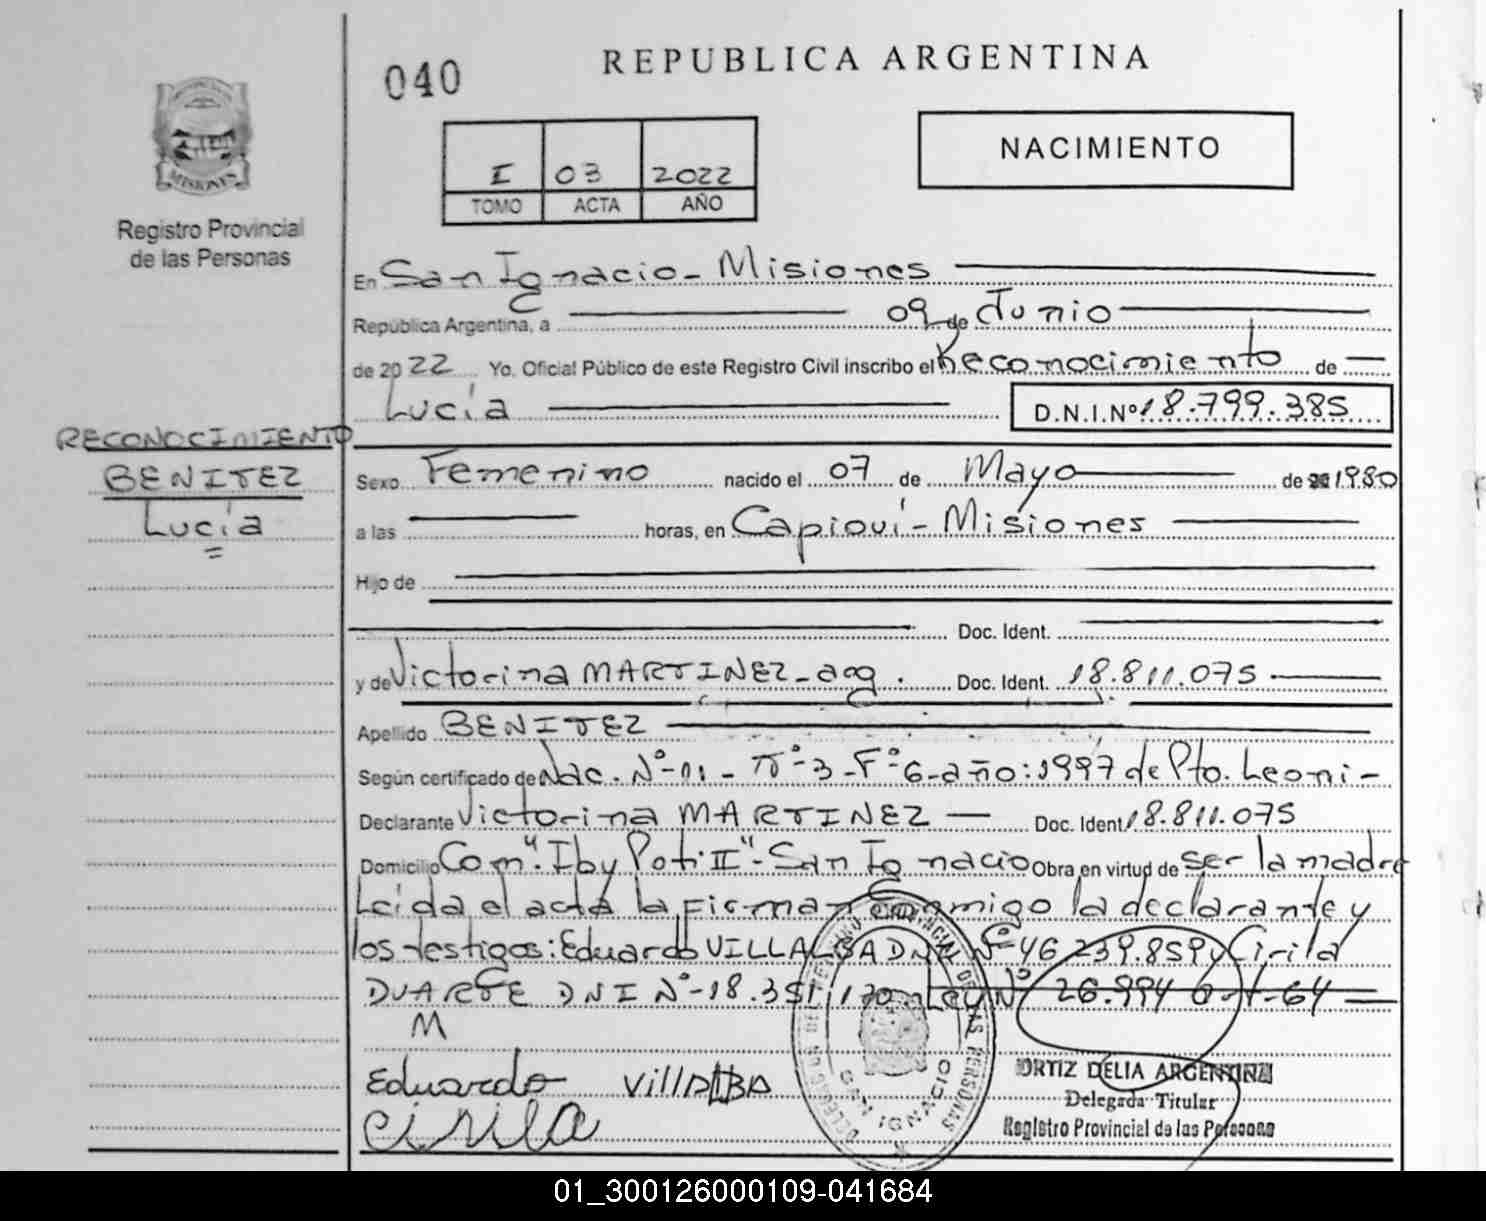 040
REPUBLICA ARGENTINA
MISIONES
Registro Provincial
de las Personas
I 03 2022
TOMO ACTA AÑO
NACIMIENTO
En San Ignacio - Misiones
República Argentina, a 09 de Junio
de 2022 Yo, Oficial Público de este Registro Civil inscribo el Reconocimiento de
Lucía D.N.I.Nº 18.799.385
RECONOCIMIENTO
BENITEZ
Lucía
Sexo Femenino nacido el 07 de Mayo de 1980
a las horas, en Capioví - Misiones
Hijo de
Doc. Ident.
y de Victorina MARTINEZ - arg. Doc. Ident. 18.811.075
Apellido BENITEZ
Según certificado de Nac. Nº-11- Tº-3-Fº6-año:1997 de Pto. Leoni-
Declarante Victorina MARTINEZ Doc. Ident 18.811.075
Domicilio Com. "Iby Poti II"- San Ignacio Obra en virtud de ser la madre
Leída el acta la firman conmigo la declarante y
los testigos: Eduardo VILLALBA DNI Nº 46 239.859 y Cirila
DUARTE DNI Nº-18.351.170 Ley Nº 26.994
M
Eduardo VillALBA
cirila
DELEGACION DEL REGISTRO PROVINCIAL DE LAS PERSONAS
SAN IGNACIO
ORTIZ DELIA ARGENTINA
Delegada Titular
Registro Provincial de las Personas
01_300126000109-041684